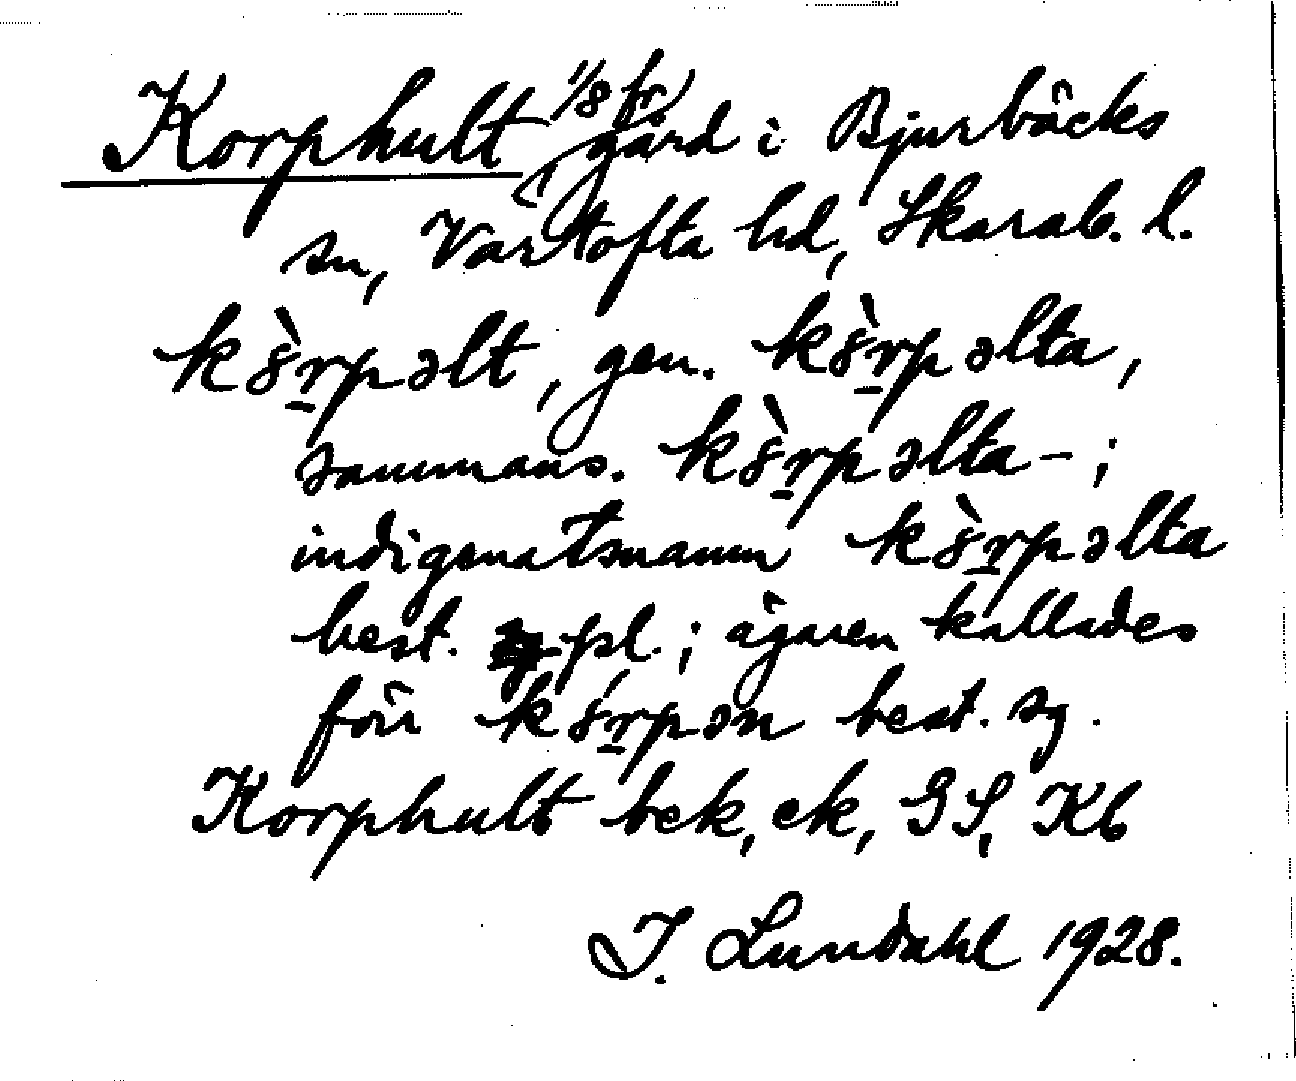 Korphult 1/8 fr gård i Bjurbäcks
sn, Vartofta hd, Skarab. l.
kòrpəlt, gen. kòrpəlta,
sammans. kòrpəlta-;
indigenatsnamn kòrpəlta
best. pl.; ägaren kallades
för kórpən best. sg.
Korphult bek, ek, GS, Kb
I. Lundahl 1928.